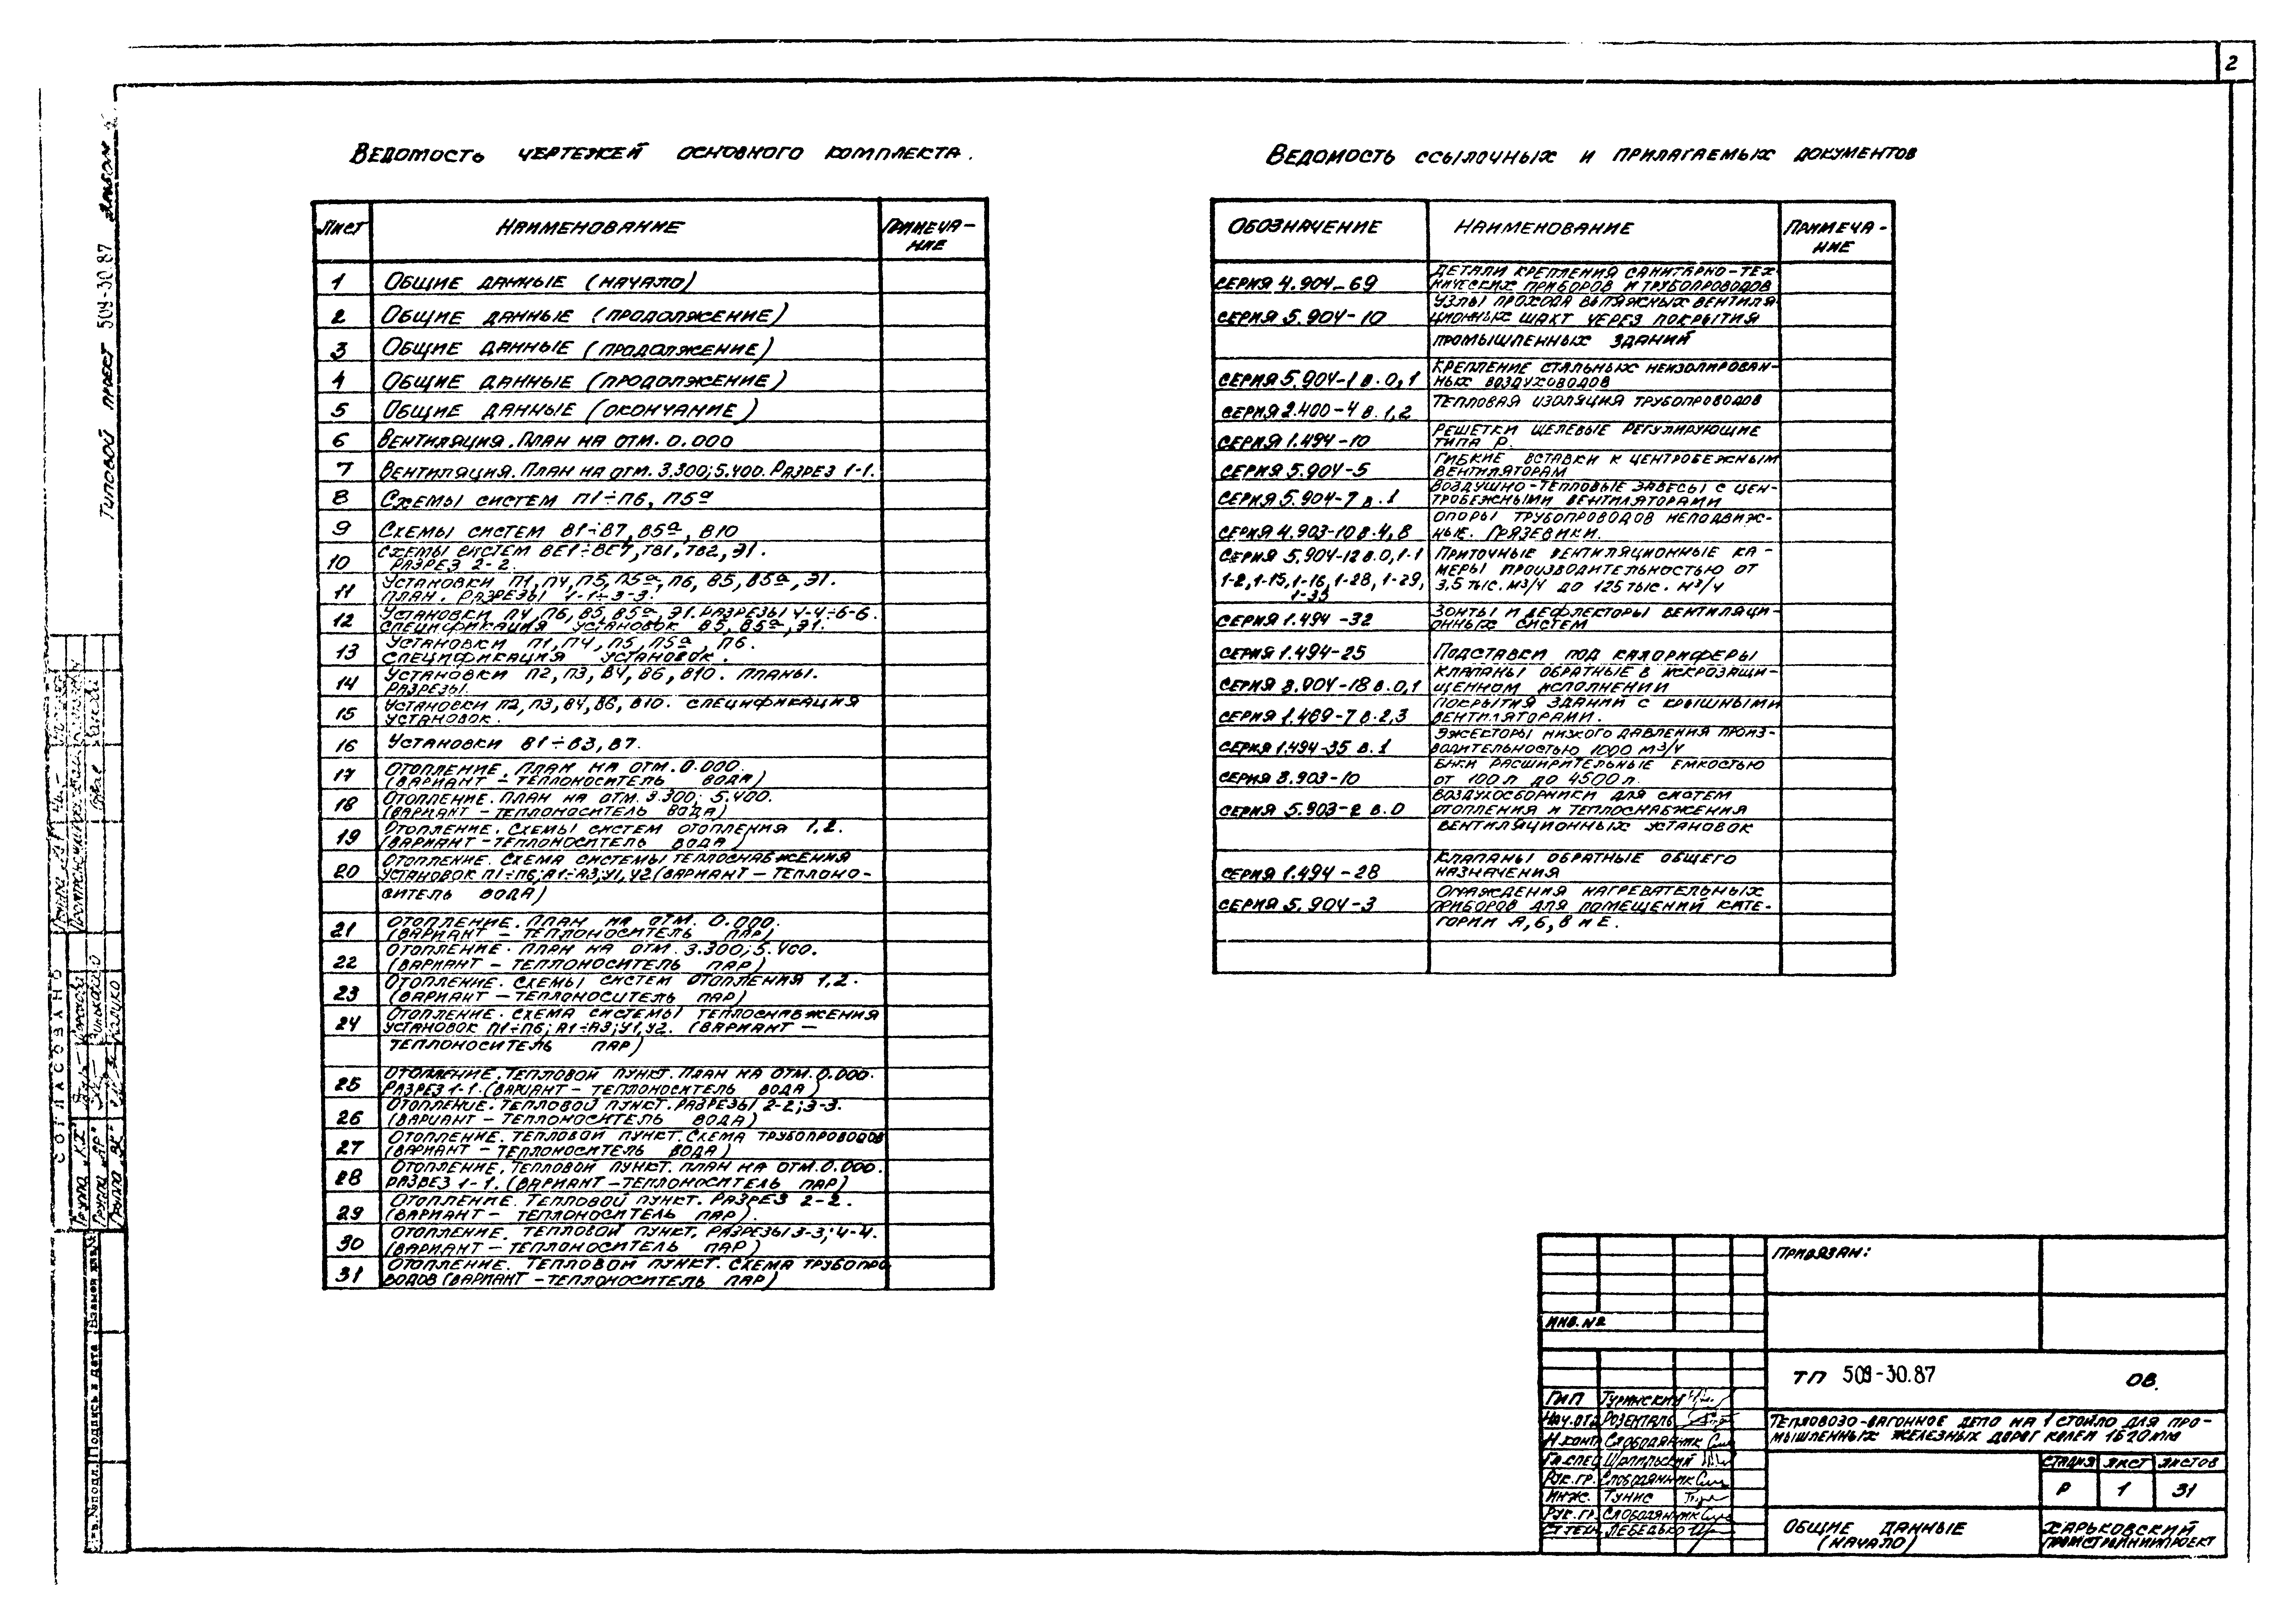 2
Типовой проект 509-30.87 Альбом
Ведомость чертежей основного комплекта.
Лист Наименование Примеча-
ние
1 Общие данные (начало)
2 Общие данные (продолжение)
3 Общие данные (продолжение)
4 Общие данные (продолжение)
5 Общие данные (окончание)
6 Вентиляция. План на отм. 0.000
7 Вентиляция. План на отм. 3.300; 5.400. Разрез 1-1.
8 Схемы систем П1÷П6, П5а
9 Схемы систем В1÷В7, В5а, В10
10 Схемы систем ВЕ1÷ВЕ7, ТВ1, ТВ2, Э1.
Разрез 2-2.
11 Установки П1, П4, П5, П5а, П6, В5, В5а, Э1.
План. Разрезы 1-1÷3-3.
12 Установки П4, П6, В5, В5а, Э1. Разрезы 4-4÷6-6.
Спецификация установок В5, В5а, Э1.
13 Установки П1, П4, П5, П5а, П6.
Спецификация установок.
14 Установки П2, П3, В4, В6, В10. Планы.
Разрезы.
15 Установки П2, П3, В4, В6, В10. Спецификация
установок.
16 Установки В1÷В3, В7.
17 Отопление. План на отм. 0.000.
(вариант – теплоноситель вода)
18 Отопление. План на отм. 3.300; 5.400.
(вариант – теплоноситель вода)
19 Отопление. Схемы систем отопления 1,2.
(вариант – теплоноситель вода)
20 Отопление. Схема системы теплоснабжения
установок П1÷П6; А1÷А3; У1, У2 (вариант – теплоно-
ситель вода)
21 Отопление. План на отм. 0.000.
(вариант – теплоноситель пар)
22 Отопление. План на отм. 3.300; 5.400.
(вариант – теплоноситель пар)
23 Отопление. Схемы систем отопления 1,2.
(вариант – теплоноситель пар)
24 Отопление. Схема системы теплоснабжения
установок П1÷П6; А1÷А3; У1, У2. (вариант –
теплоноситель пар)
25 Отопление. Тепловой пункт. План на отм. 0.000.
Разрез 1-1. (вариант – теплоноситель вода)
26 Отопление. Тепловой пункт. Разрезы 2-2; 3-3.
(вариант – теплоноситель вода)
27 Отопление. Тепловой пункт. Схема трубопроводов
(вариант – теплоноситель вода)
28 Отопление. Тепловой пункт. План на отм. 0.000.
Разрез 1-1. (вариант – теплоноситель пар)
29 Отопление. Тепловой пункт. Разрез 2-2.
(вариант – теплоноситель пар).
30 Отопление. Тепловой пункт. Разрезы 3-3; 4-4.
(вариант – теплоноситель пар)
31 Отопление. Тепловой пункт. Схема трубопро
водов (вариант – теплоноситель пар)
Ведомость ссылочных и прилагаемых документов
Обозначение Наименование Примеча-
ние
Серия 4.904-69 Детали крепления санитарно-тех
нических приборов и трубопроводов
Серия 5.904-10 Узлы прохода вытяжных вентиля
ционных шахт через покрытия
промышленных зданий
Серия 5.904-1 в.0,1 Крепление стальных неизолирован-
ных воздуховодов
Серия 2.400-4 в.1,2 Тепловая изоляция трубопроводов
Серия 1.494-10 Решетки щелевые регулирующие
типа Р.
Серия 5.904-5 Гибкие вставки к центробежным
вентиляторам
Серия 5.904-7 в.1 Воздушно-тепловые завесы с цен-
тробежными вентиляторами
Серия 4.903-10 в.4,8 Опоры трубопроводов неподвиж-
ные. Грязевики.
Серия 5.904-12 в.0,1-1 Приточные вентиляционные ка-
1-2, 1-15, 1-16, 1-28, 1-29, меры производительностью от
1-35 3,5 тыс. м3/ч до 125 тыс. м3/ч
Серия 1.494-32 Зонты и дефлекторы вентиляци-
онных систем
Серия 1.494-25 Подставки под калориферы
Серия 3.904-18 в.0,1 Клапаны обратные в искрозащи-
щенном исполнении
Серия 1.469-7 в.2,3 Покрытия зданий с крышными
вентиляторами.
Серия 1.494-35 в.1 Эжекторы низкого давления произ-
водительностью 1000 м3/ч
Серия 3.903-10 Баки расширительные емкостью
от 100 л до 4500 л.
Серия 5.903-2 в.0 Воздухосборники для систем
отопления и теплоснабжения
вентиляционных установок
Серия 1.494-28 Клапаны обратные общего
назначения
Серия 5.904-3 Ограждения нагревательных
приборов для помещений кате-
гории А, Б, В и Е.
Привязан:
Инв. №
ТП 509-30.87 ОВ.
ГИП Туринский
Нач.отд Розенталь
Н.конт Слободяник
Гл.спец
Рук.гр. Слободяник
Инж. Тунис
Рук.гр. Слободяник
Ст.техн. Лебедько
Тепловозо-вагонное депо на 1 стойло для про-
мышленных железных дорог колеи 1520мм
Стадия Лист Листов
Р 1 31
Общие данные
(начало)
Харьковский
Промстройниипроект
СОГЛАСОВАНО
Группа
Группа „АР"
Группа „ВК"
Инв.№подл. Подпись и дата Взамен инв.№